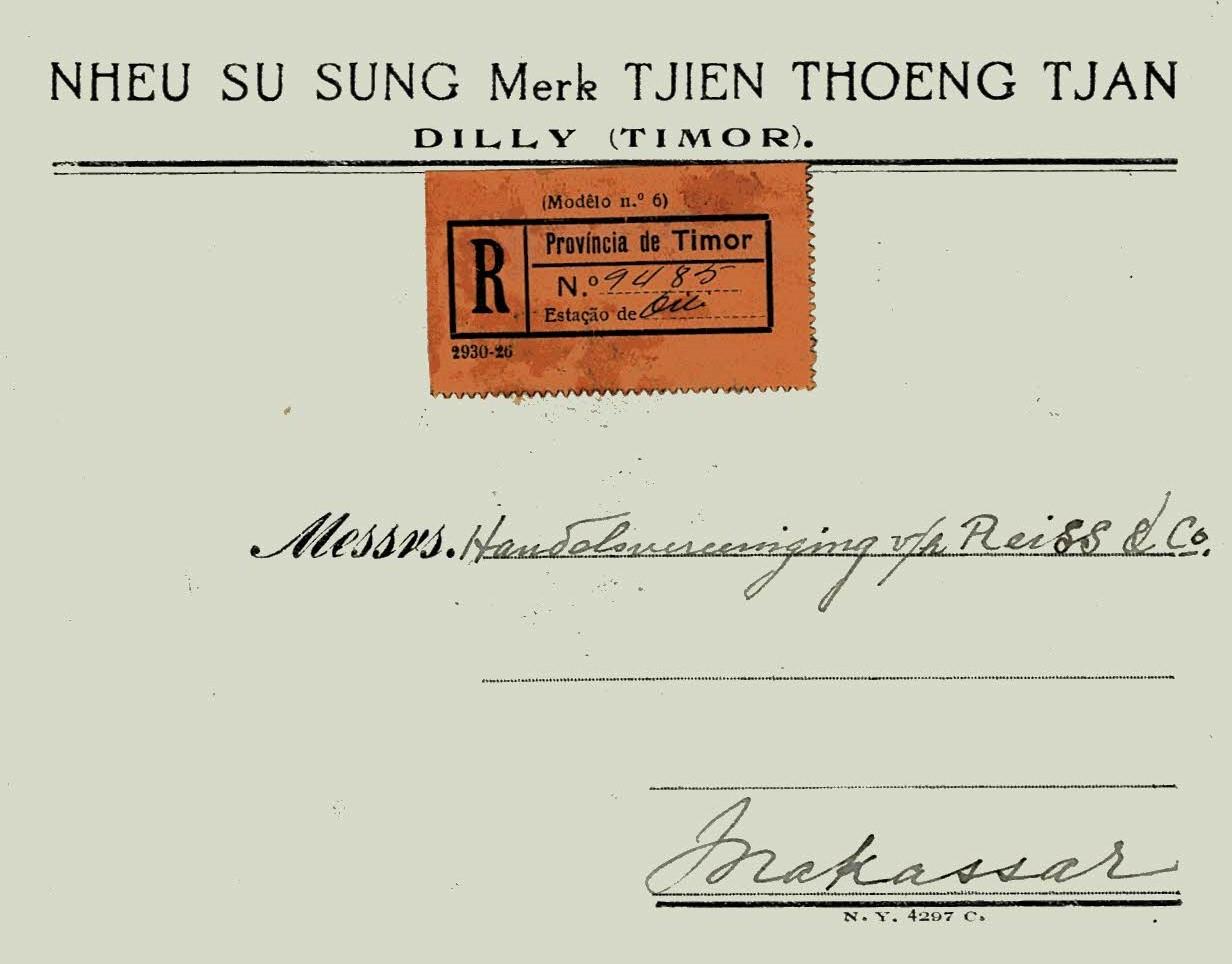 NHEU SU SUNG Merk TJIEN THOENG TJAN
DILLY (TIMOR).
(Modêlo n.º 6)
R
Província de Timor
N.º 9485
Estação de
2930-26
Messrs. Handelsvereeniging v/h Reiss & Co.
Makassar
N. Y. 4297 C.